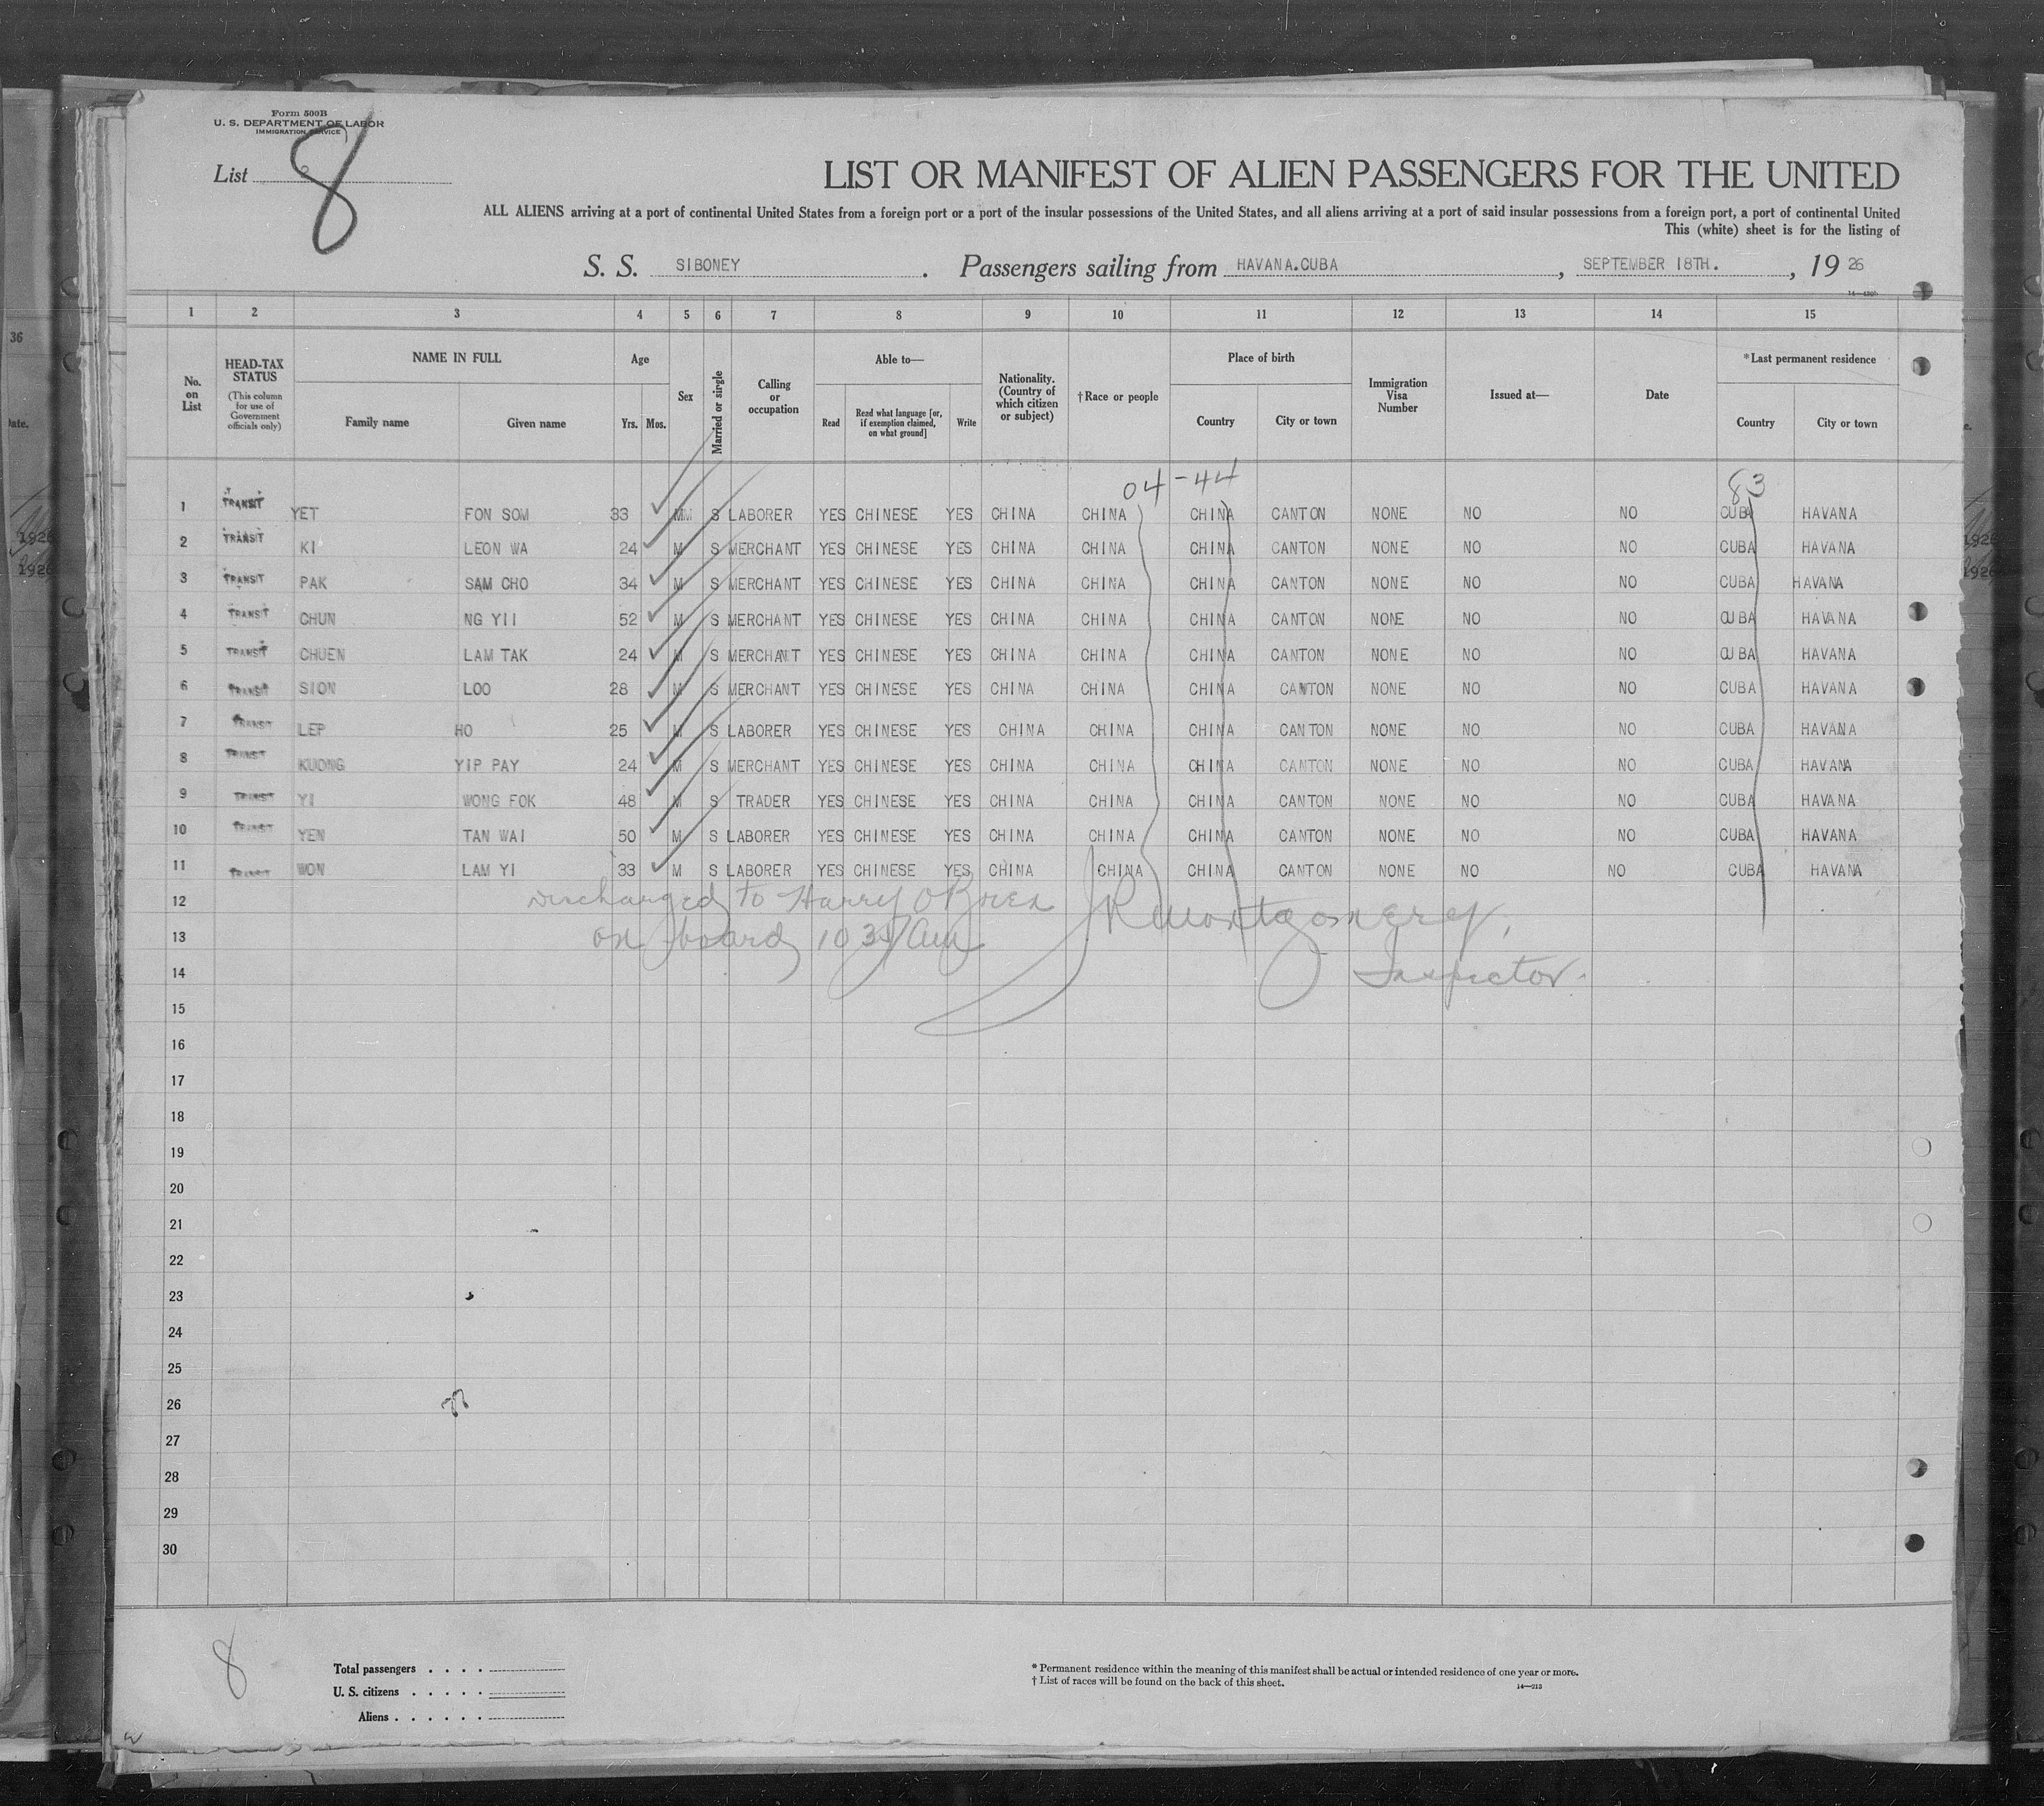 Form 500B
U. S. DEPARTMENT OF LABOR
IMMIGRATION SERVICE
List 8
LIST OR MANIFEST OF ALIEN PASSENGERS FOR THE UNITED
ALL ALIENS arriving at a port of continental United States from a foreign port or a port of the insular possessions of the United States, and all aliens arriving at a port of said insular possessions from a foreign port, a port of continental United
This (white) sheet is for the listing of
S. S. SIBONEY. Passengers sailing from HAVANA.CUBA, SEPTEMBER 18TH., 19 26
1 2 3 4 5 6 7 8 9 10 11 12 13 14 15
No. on List HEAD-TAX STATUS (This column for use of Government officials only) NAME IN FULL Family name Given name Age Yrs. Mos. Sex Married or single Calling or occupation Able to— Read Read what language [or, if exemption claimed, on what ground] Write Nationality. (Country of which citizen or subject) †Race or people Place of birth Country City or town Immigration Visa Number Issued at— Date *Last permanent residence Country City or town
04-44 83
1 TRANSIT YET FON SOM 33 MM S LABORER YES CHINESE YES CHINA CHINA CHINA CANTON NONE NO NO CUBA HAVANA
2 TRANSIT KI LEON WA 24 M S MERCHANT YES CHINESE YES CHINA CHINA CHINA CANTON NONE NO NO CUBA HAVANA
3 TRANSIT PAK SAM CHO 34 M S MERCHANT YES CHINESE YES CHINA CHINA CHINA CANTON NONE NO NO CUBA HAVANA
4 TRANSIT CHUN NG YII 52 M S MERCHANT YES CHINESE YES CHINA CHINA CHINA CANTON NONE NO NO CUBA HAVANA
5 TRANSIT CHUEN LAM TAK 24 M S MERCHANT YES CHINESE YES CHINA CHINA CHINA CANTON NONE NO NO CUBA HAVANA
6 TRANSIT SION LOO 28 M S MERCHANT YES CHINESE YES CHINA CHINA CHINA CANTON NONE NO NO CUBA HAVANA
7 TRANSIT LEP HO 25 M S LABORER YES CHINESE YES CHINA CHINA CHINA CANTON NONE NO NO CUBA HAVANA
8 TRANSIT KUONG YIP PAY 24 M S MERCHANT YES CHINESE YES CHINA CHINA CHINA CANTON NONE NO NO CUBA HAVANA
9 TRANSIT YI WONG FOK 48 M S TRADER YES CHINESE YES CHINA CHINA CHINA CANTON NONE NO NO CUBA HAVANA
10 TRANSIT YEN TAN WAI 50 M S LABORER YES CHINESE YES CHINA CHINA CHINA CANTON NONE NO NO CUBA HAVANA
11 TRANSIT WON LAM YI 33 M S LABORER YES CHINESE YES CHINA CHINA CHINA CANTON NONE NO NO CUBA HAVANA
12 Discharged to Harry OBrien JR Montgomery,
13 on board 10 35 Am
14 Inspector.
15
16
17
18
19
20
21
22
23
24
25
26
27
28
29
30
8
Total passengers
U. S. citizens
Aliens
* Permanent residence within the meaning of this manifest shall be actual or intended residence of one year or more.
† List of races will be found on the back of this sheet.
14—213
36
Date.
1926
1926
1926
1926